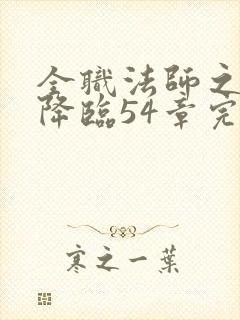 全職法師之
降臨54章完
寒之一葉